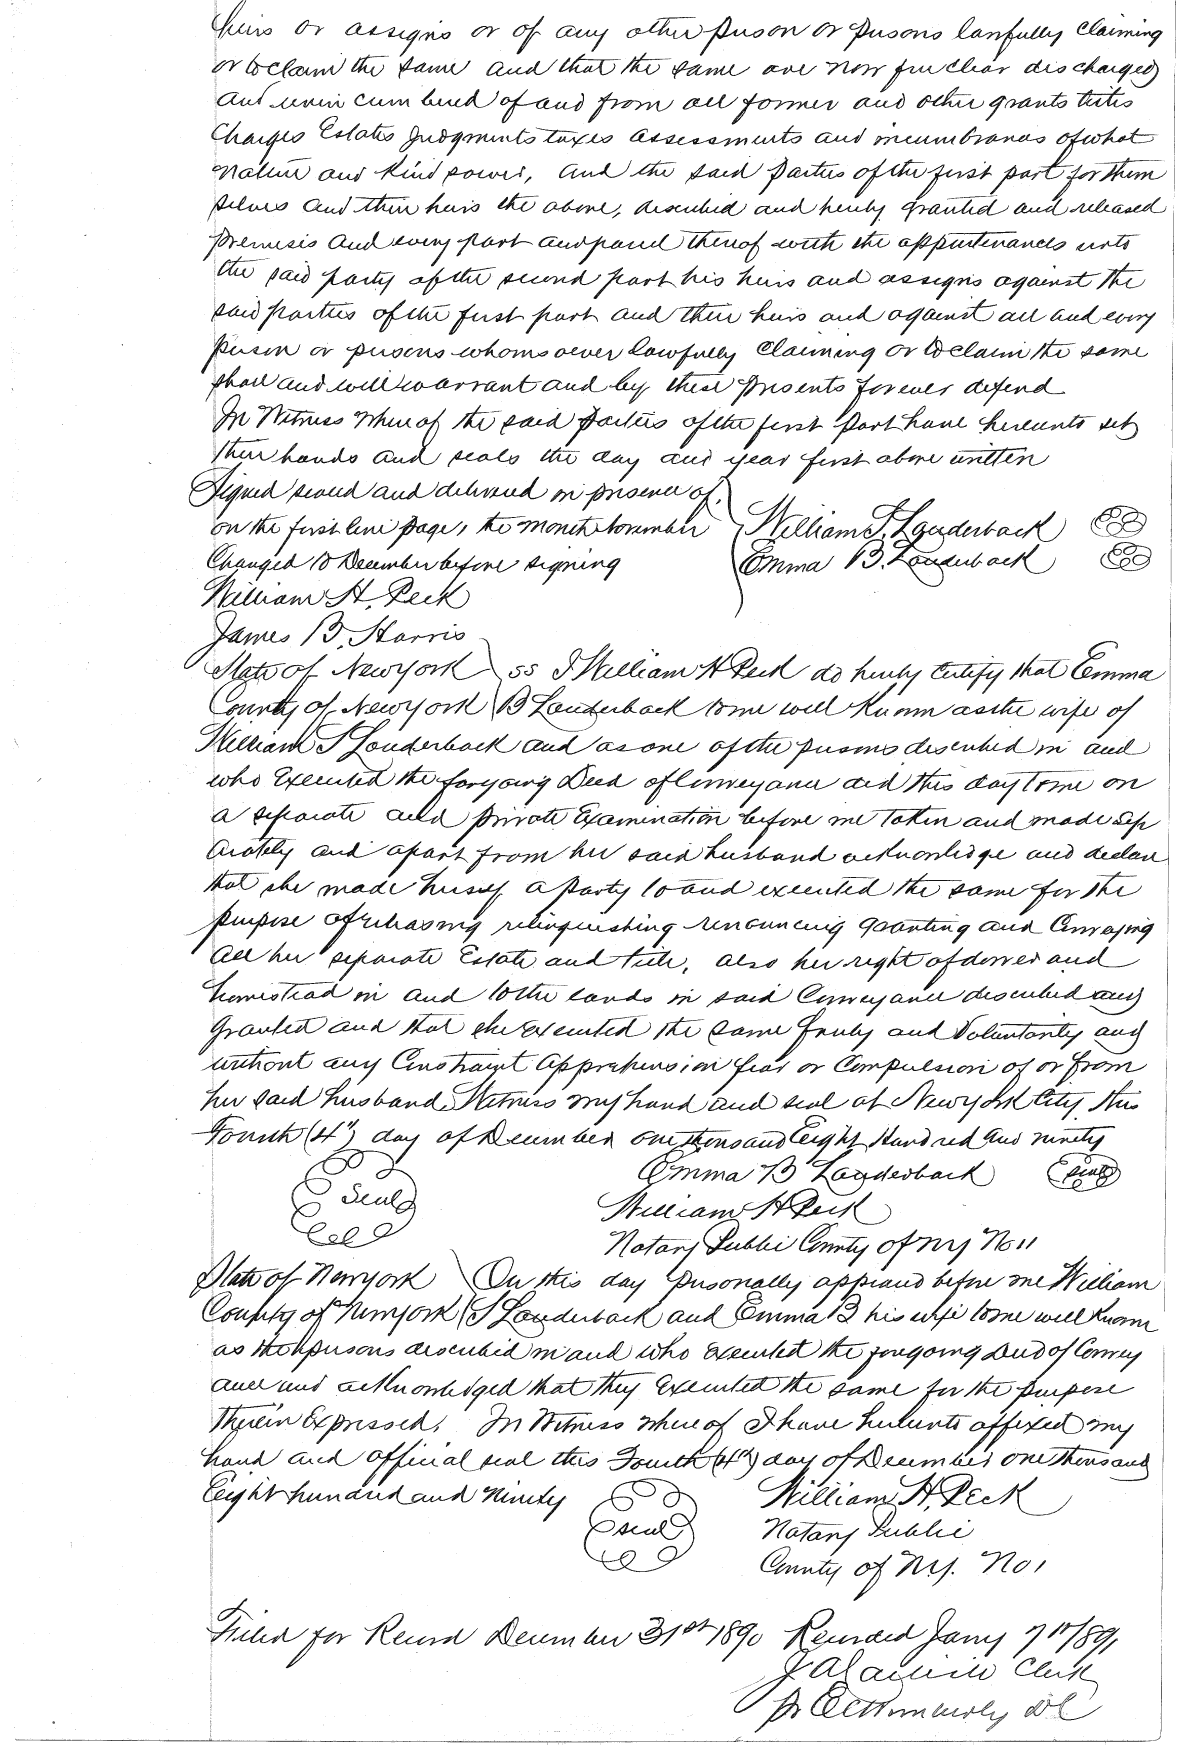 heirs or assigns or of any other person or persons lawfully claiming
or to claim the same and that the same are now free clear discharged
and unincumbered of and from all former and other grants titles
Charges Estates Judgments taxes assessments and incumbrances of what
nature and kind soever, and the said Parties of the first part for them
selves and their heirs the above, described and hereby granted and released
premises and every part and parcel thereof with the appurtenances unto
the said party of the second part his heirs and assigns against the
said parties of the first part and their heirs and against all and every
person or persons whomsoever lawfully claiming or to claim the same
shall and will warrant and by these presents forever defend
In Witness whereof the said Parties of the first Part have hereunto set
their hands and seals the day and year first above written
Signed sealed and delivered in presence of.
on the first line page, the month November William S. Louderback
Changed to December before signing Emma B. Louderback
William H. Peck
James B. Harris
State of New york ss I William H Peck do hereby certify that Emma
County of New york B Louderback to me well Known as the wife of
William S Louderback and as one of the persons described in and
who Executed the foregoing Deed of Conveyance did this day to me on
a separate and private Examination before me taken and made sep
arately and apart from her said husband acknowledge and declare
that she made herself a Party to and executed the same for the
purpose of releasing relinquishing renouncing granting and Conveying
all her separate Estate and title, also her right of dower and
homestead in and to the lands in said Conveyance described and
granted and that she executed the same freely and Voluntarily and
without any Constraint apprehension fear or Compulsion of or from
her said husband. Witness my hand and seal at New york City this
Fourth (4th) day of December one thousand Eight Hundred and ninety
Emma B Louderback seal
Seal William H Peck
Notary Public County of N Y No 11
State of New york On this day personally appeared before me William
County of New york S Louderback and Emma B his wife to me well Known
as the persons described in and who executed the foregoing Deed of Convey
ance and acknowledged that they Executed the same for the purpose
therein Expressed. In Witness whereof I have hereunto affixed my
hand and official seal this Fourth (4th) day of December one thousand
Eight hundred and Ninety William H. Peck
seal Notary Public
County of N.Y. No 1
Filed for Record December 31st 1890 Recorded Jany 7th/891
Clerk
pr D C